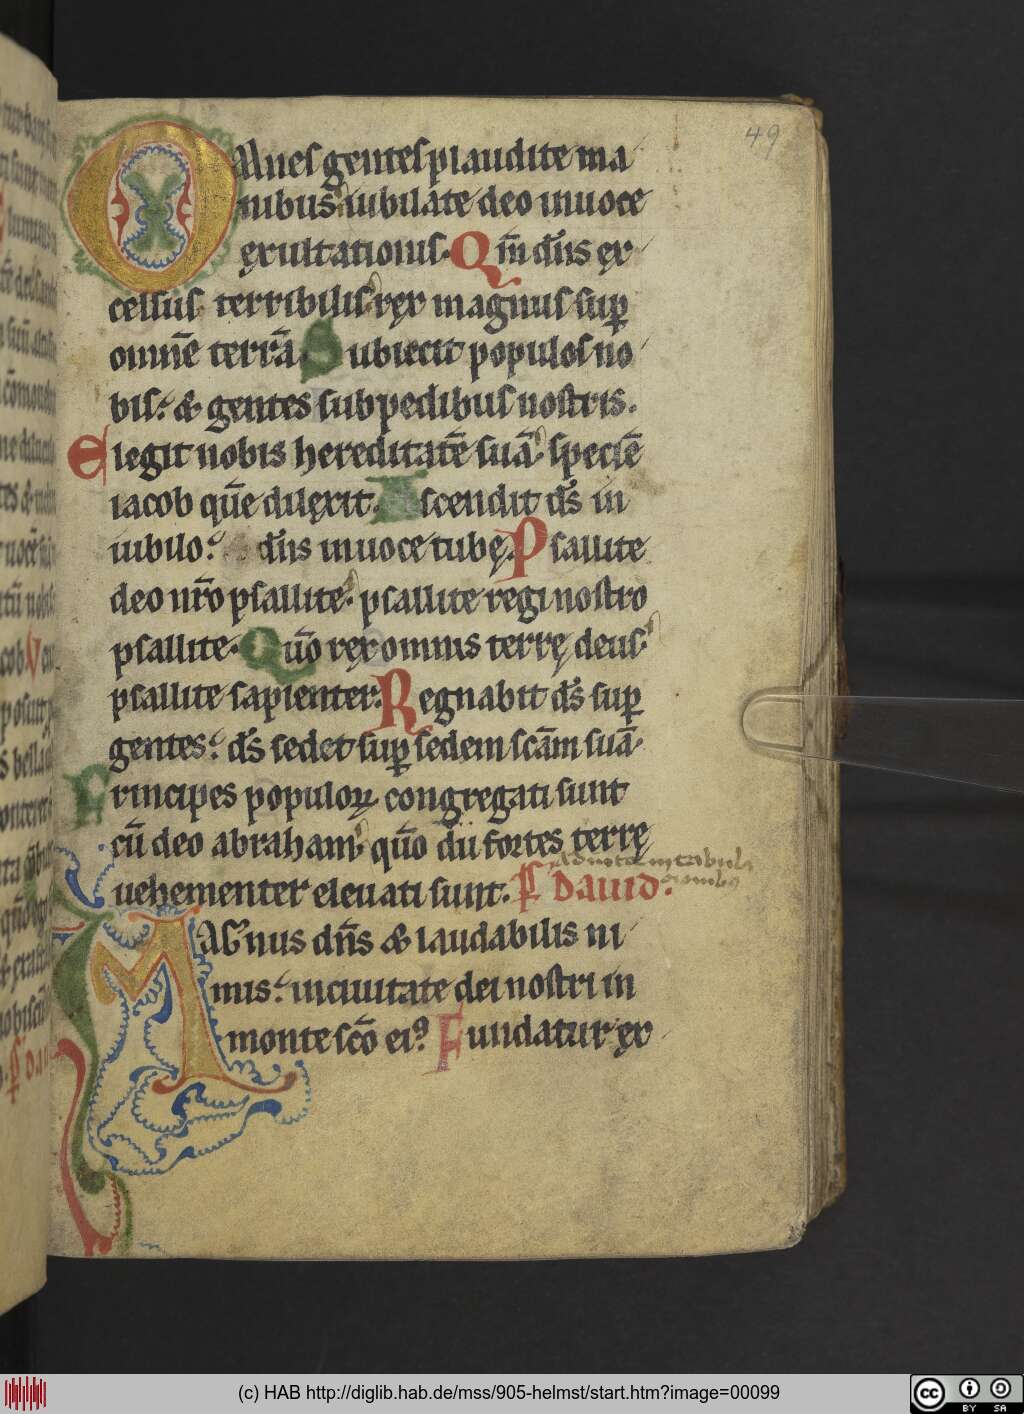 49
OMnes gentes plaudite ma
nibus iubilate deo in uoce
exultationis. Qm̄ dn̄s ex
celsus terribilis rex magnus sup̱
omnē terrā. Subiecit populos no
bis. & gentes sub pedibus nostris.
Elegit nobis hereditatē suā. speciē
iacob quē dilexit. Ascendit ds̄ in
iubilo. dn̄s in uoce tubę. Psallite
deo nr̄o psallite. psallite regi nostro
psallite. Quō rex omnis terrę deus.
psallite sapienter. Regnabit ds̄ sup̱
gentes. ds̄ sedet sup̱ sedem scām suā.
Principes populoꝝ congregati sunt
cū deo abraham. quō dii fortes terrę
uehementer eleuati sunt. Ps̄ Dauid.
MAGnus dn̄s & laudabilis ni
mis. in ciuitate dei nostri in
monte scō eiꝰ. Fundatur ex
(c) HAB http://diglib.hab.de/mss/905-helmst/start.htm?image=00099
cc BY SA